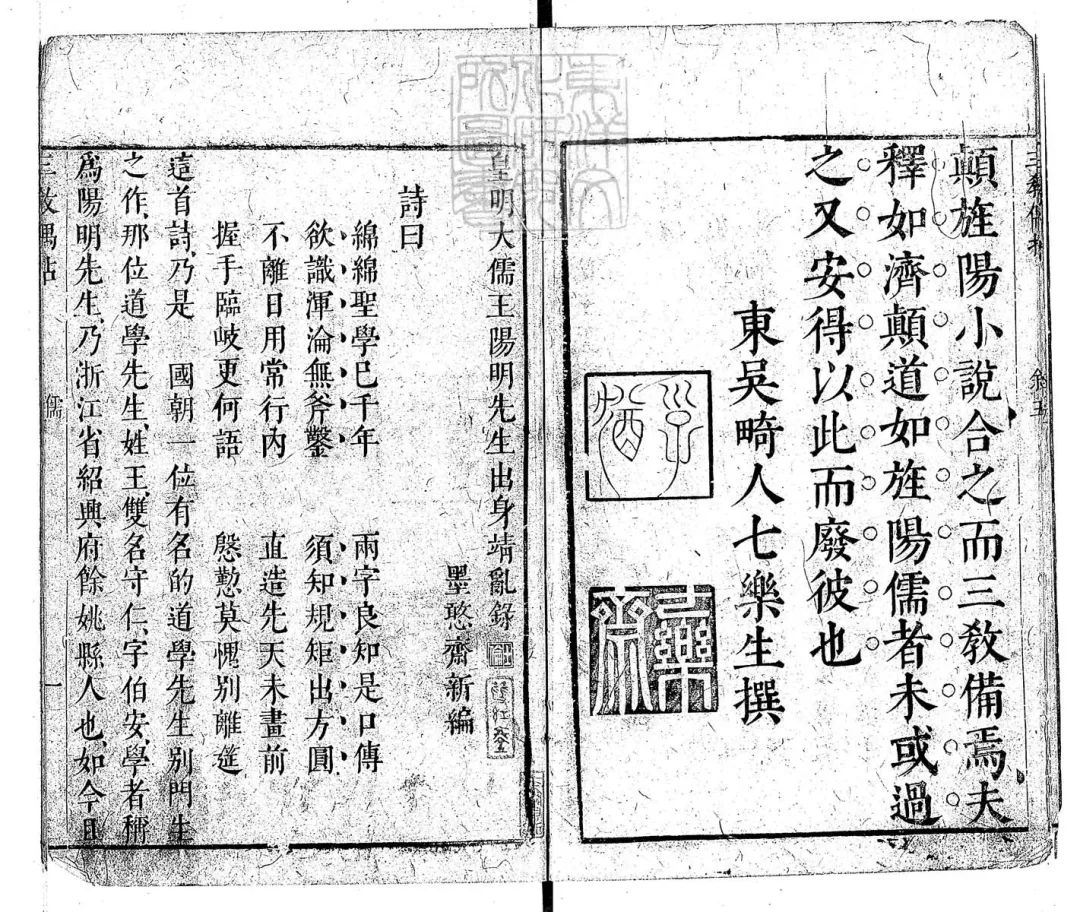 顛旌陽小說合之而三教備焉夫
釋如濟顛道如旌陽儒者未或過
之又安得以此而廢彼也
東吳畸人七樂生撰
七樂
皇明大儒王陽明先生出身靖亂錄
墨憨齋新編
詩曰
綿綿聖學已千年 兩字良知是口傳
欲識渾淪無斧鑿 須知規矩出方圓
不離日用常行內 直造先天未畫前
握手臨岐更何語 慇懃莫愧別離筵
這首詩乃是 國朝一位有名的道學先生別門生
之作、那位道學先生、姓王、雙名守仁、字伯安、學者稱
為陽明先生、乃浙江省紹興府餘姚縣人也、如今且
三教偶拈 儒 一